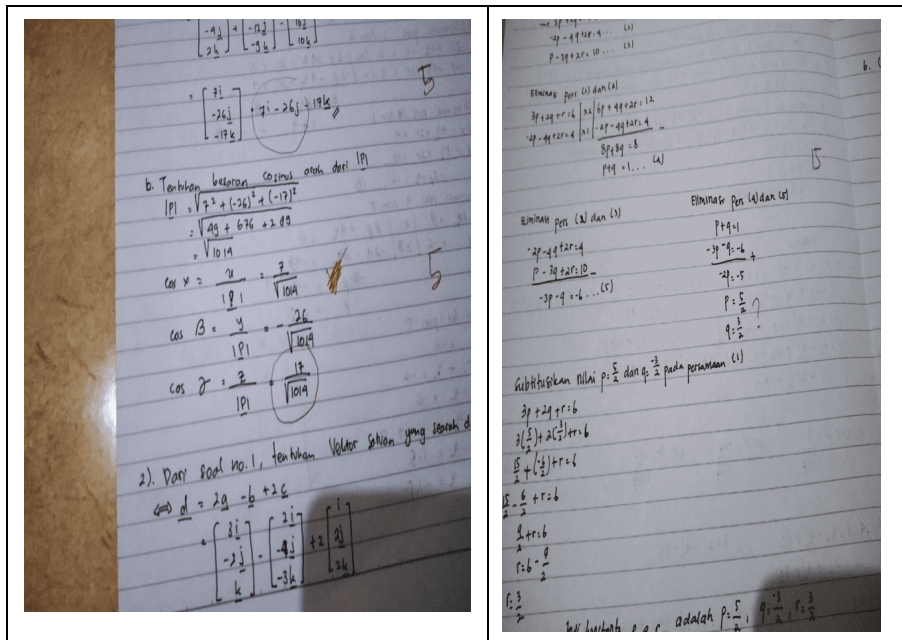 [-4j] + [-12j] - [10j]
[2k] [-3k] [10k]
= [7i]
[-26j] = 7i - 26j - 17k
[-17k]
5
b. Tentukan besaran cosinus arah dari |P|
|P| = √7² + (-26)² + (-17)²
= √49 + 676 + 289
= √1014
cos x = x/|P| = 7/√1014
5
cos β = y/|P| = -26/√1014
cos γ = z/|P| = 17/√1014
2). Dari soal no. 1, tentukan Vektor satuan yang searah d
⇔ d = 2a - b + 2c
= [3i] - [2i] + 2 [i]
[-2j] [-4j] [2j]
[k] [-3k] [2k]
-2p - 4q + 2r = 4 ... (2)
p - 3q + 2r = 10 ... (3)
b.
Eliminasi pers (1) dan (2)
3p + 2q + r = 6 | x2 | 6p + 4q + 2r = 12
-2p - 4q + 2r = 4 | x1 | -2p - 4q + 2r = 4 -
8p + 8q = 8
p + q = 1 ... (4)
15
Eliminasi pers (2) dan (3)
-2p - 4q + 2r = 4
p - 3q + 2r = 10 -
-3p - q = -6 ... (5)
Eliminasi pers (4) dan (5)
p + q = 1
-3p - q = -6 +
-2p = -5
p = 5/2
q = 3/2 ?
Subtitusikan nilai p = 5/2 dan q = -3/2 pada persamaan (1)
3p + 2q + r = 6
3(5/2) + 2(-3/2) + r = 6
15/2 + (-6/2) + r = 6
15/2 - 6/2 + r = 6
9/2 + r = 6
r = 6 - 9/2
r = 3/2
Jadi konstanta p, q, r, adalah p = 5/2, q = -3/2, r = 3/2